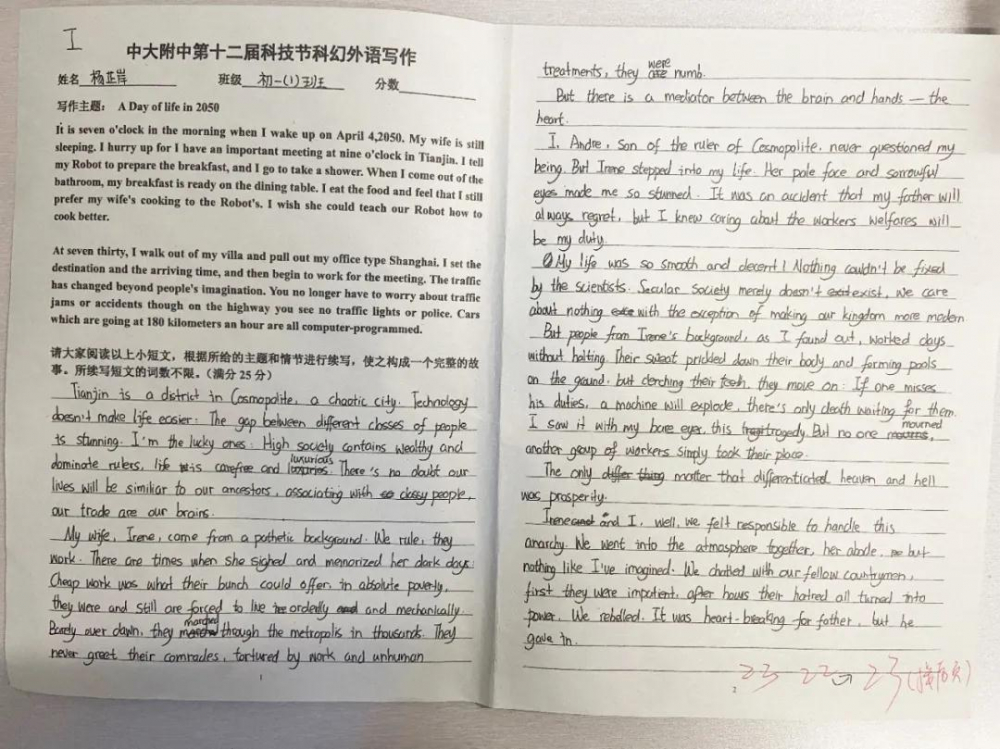 I
中大附中第十二届科技节科幻外语写作
姓名 杨芷岸 班级 初一(1)班 分数
写作主题： A Day of life in 2050
It is seven o'clock in the morning when I wake up on April 4,2050. My wife is still
sleeping. I hurry up for I have an important meeting at nine o'clock in Tianjin. I tell
my Robot to prepare the breakfast, and I go to take a shower. When I come out of the
bathroom, my breakfast is ready on the dining table. I eat the food and feel that I still
prefer my wife's cooking to the Robot's. I wish she could teach our Robot how to
cook better.
At seven thirty, I walk out of my villa and pull out my office type Shanghai. I set the
destination and the arriving time, and then begin to work for the meeting. The traffic
has changed beyond people's imagination. You no longer have to worry about traffic
jams or accidents though on the highway you see no traffic lights or police. Cars
which are going at 180 kilometers an hour are all computer-programmed.
请大家阅读以上小短文，根据所给的主题和情节进行续写，使之构成一个完整的故
事。所续写短文的词数不限。（满分 25 分）
Tianjin is a district in Cosmopolite, a chaotic city. Technology
doesn't make life easier. The gap between different classes of people
is stunning. I'm the lucky ones. High society contains wealthy and
dominate rulers, life is carefree and luxurious. There's no doubt our
lives will be similiar to our ancestors, associating with classy people,
our trade are our brains.
My wife, Irene, came from a pathetic background. We rule, they
work. There are times when she sighed and menorized her dark days.
Cheap work was what their bunch could offer, in absolute poverty,
they were and still are forced to live orderly and mechanically.
Barely over dawn, they marched through the metropolis in thousands. They
never greet their comrades, tortured by work and unhuman
1
treatments, they were numb.
But there is a mediator between the brain and hands — the
heart.
I, Andre, son of the ruler of Cosmopolite, never questioned my
being. But Irene stepped into my life. Her pale face and sorrowful
eyes made me so stunned. It was an accident that my father will
always regret, but I knew caring about the workers welfares will
be my duty.
My life was so smooth and decent! Nothing couldn't be fixed
by the scientists. Secular society merely doesn't exist, we care
about nothing with the exception of making our kingdom more modern.
But people from Irene's background, as I found out, worked days
without halting. Their sweat prickled down their body and forming pools
on the gound, but clenching their teeth, they move on. If one misses
his duties, a machine will explode, there's only death waiting for them.
I saw it with my bare eyes, this tragedy. But no one mourned,
another group of workers simply took their place.
The only matter that differentiated heaven and hell
was prosperity.
Irene and I, well, we felt responsible to handle this
anarchy. We went into the atmosphere together, her abode, but
nothing like I've imagined. We chatted with our fellow countrymen,
first they were impatient, after hours their hatred all turned into
power. We reballed. It was heart-breaking for father, but he
gave in.
2
23 22 23